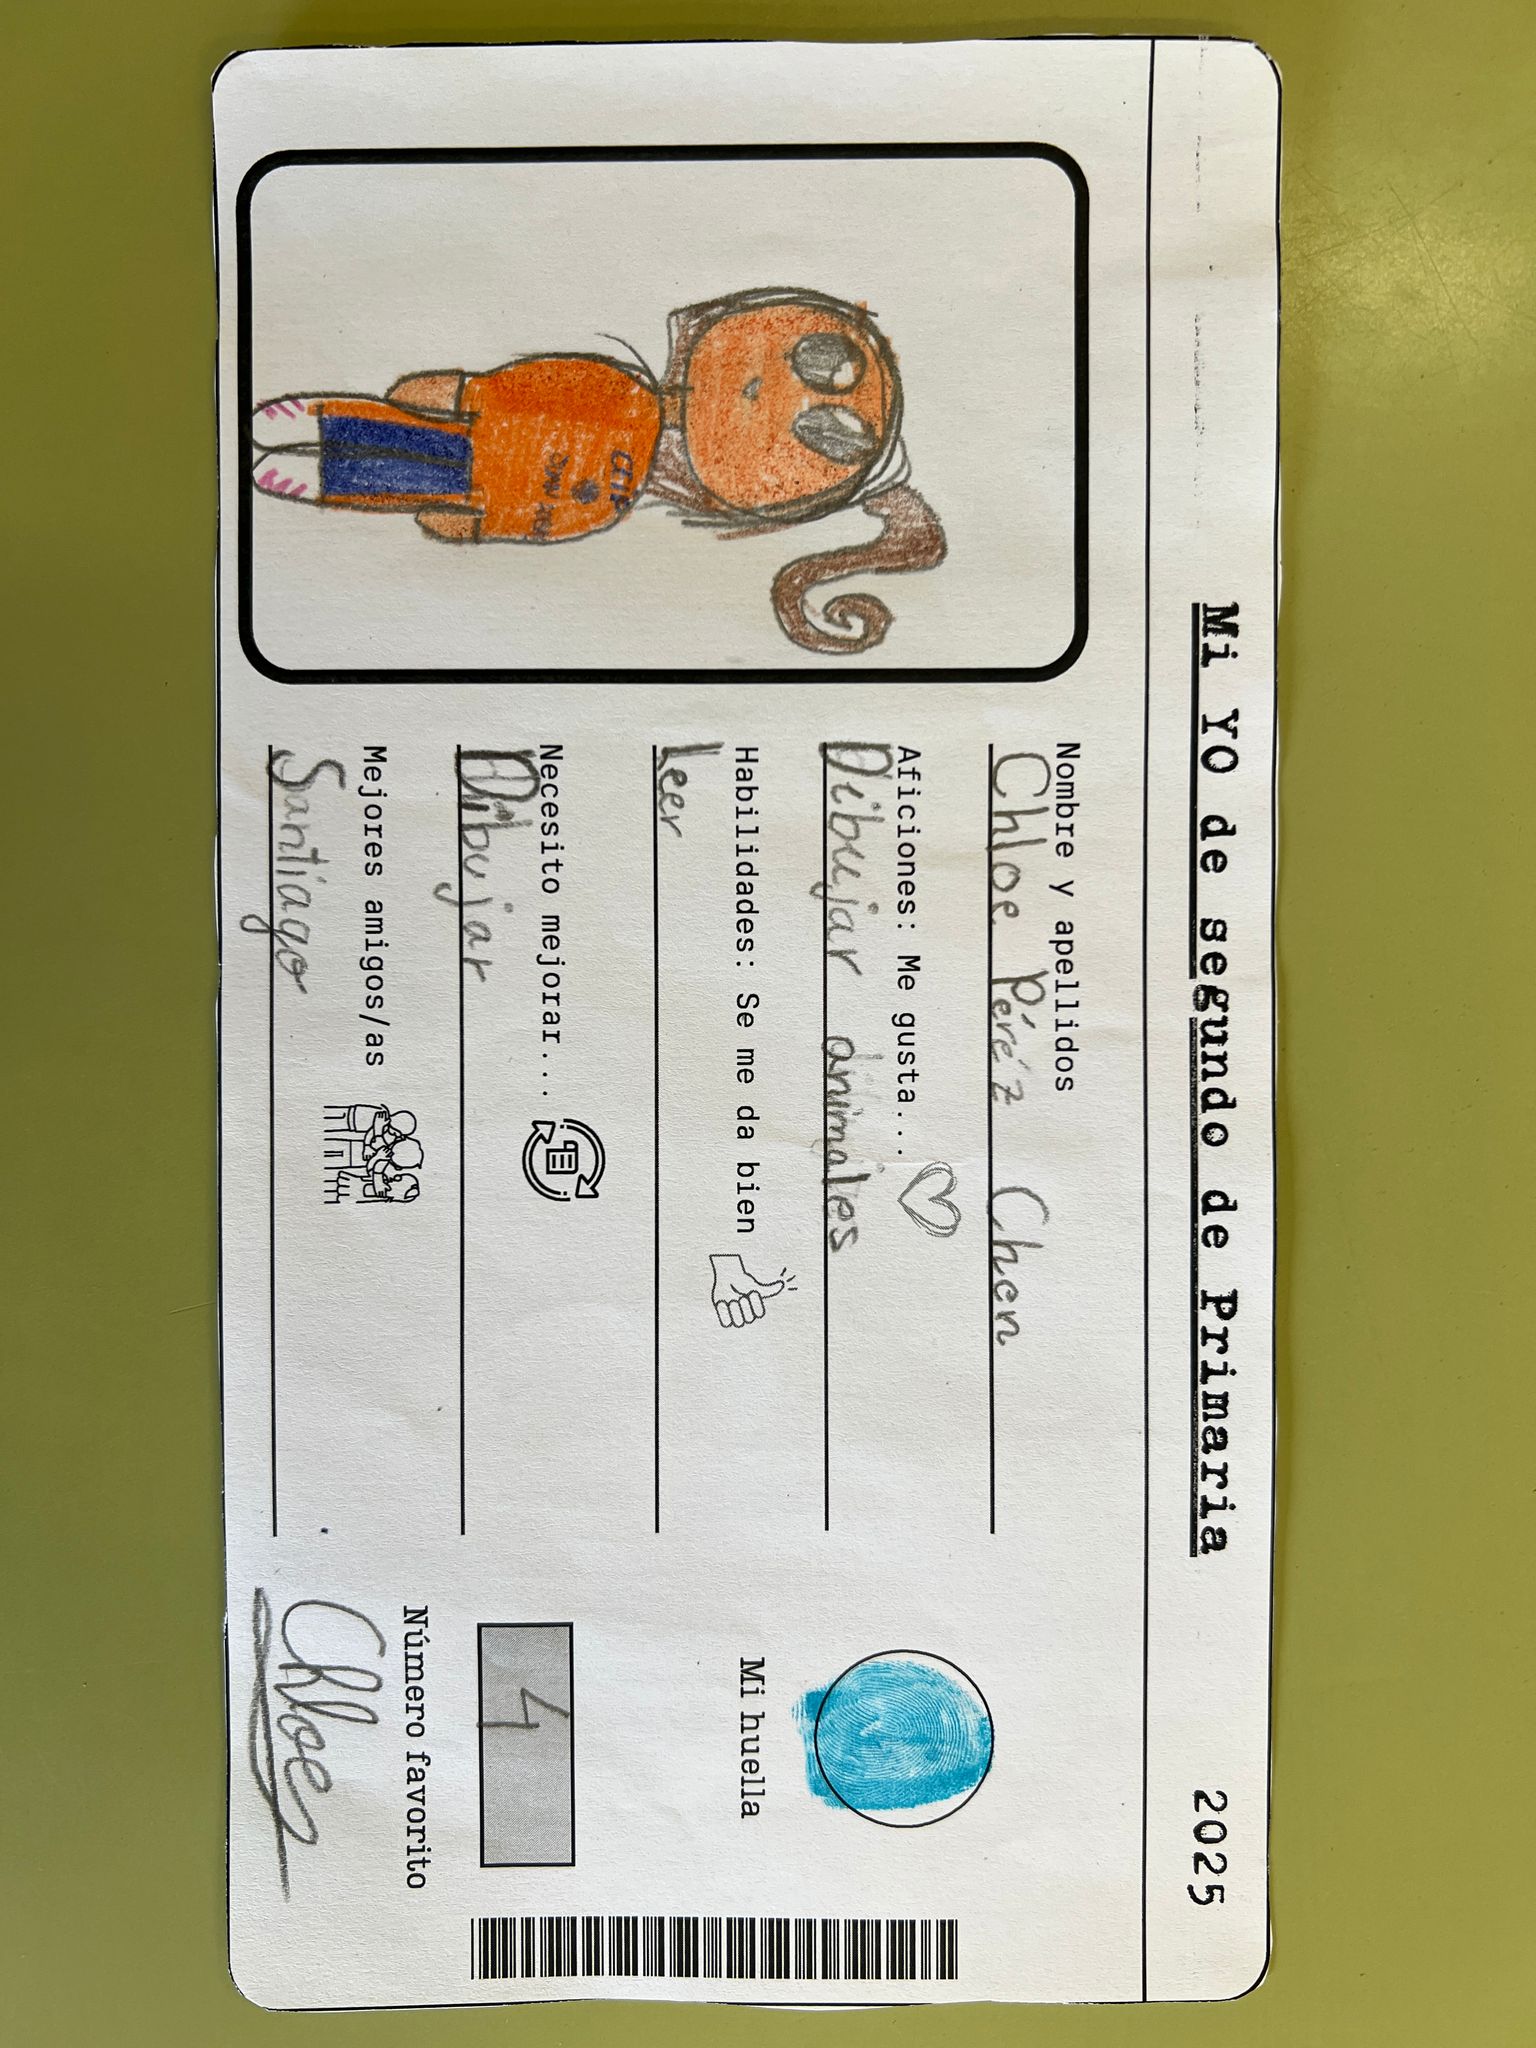 Mi YO de segundo de Primaria
2025
Nombre y apellidos
Chloe Péréz Chen
Aficiones: Me gusta...
Dibujar animales
Habilidades: Se me da bien
Leer
Necesito mejorar...
Dibujar
Mejores amigos/as
Santiago
Mi huella
4
Número favorito
Chloe
CEIP